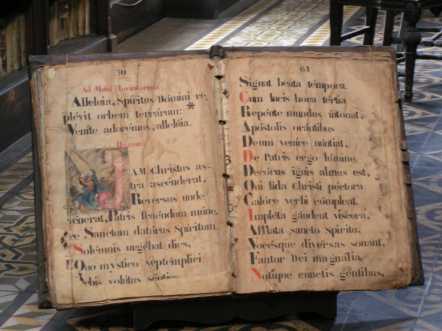 Ad Matutinum
Alleluia, Spiritus Domini re-
plevit orbem terrarum: *
Venite adoremus, alleluia.
JAM Christus as-
tra ascenderat,
Reversus unde
venerat, Patris fruendum munere
Sanctum daturus Spiritum.
Solemnis urgebat dies,
Quo mystico septemplici
Orbis volutus septies
61
Signat beata tempora.
Cum lucis hora tertia
Repente mundus intonat,
Apostolis orantibus
Deum venire nuntiat.
De Patris ergo lumine
Decorus ignis almus est,
Qui fida Christi pectora
Calore verbi compleat.
Impleta gaudent viscera,
Afflata sancto Spiritu,
Vocesque diversas sonant,
Fantur Dei magnalia.
Notique cunctis gentibus,